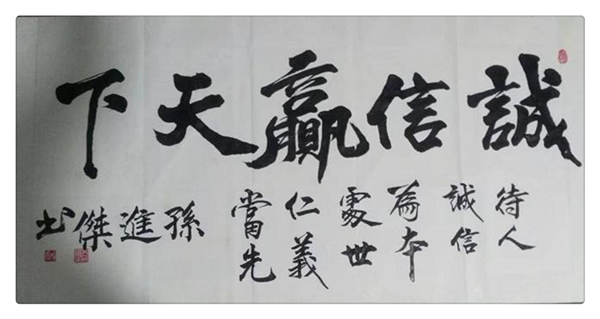 誠信贏天下
待人
誠信
為本
處世
仁義
當先
孫進傑书